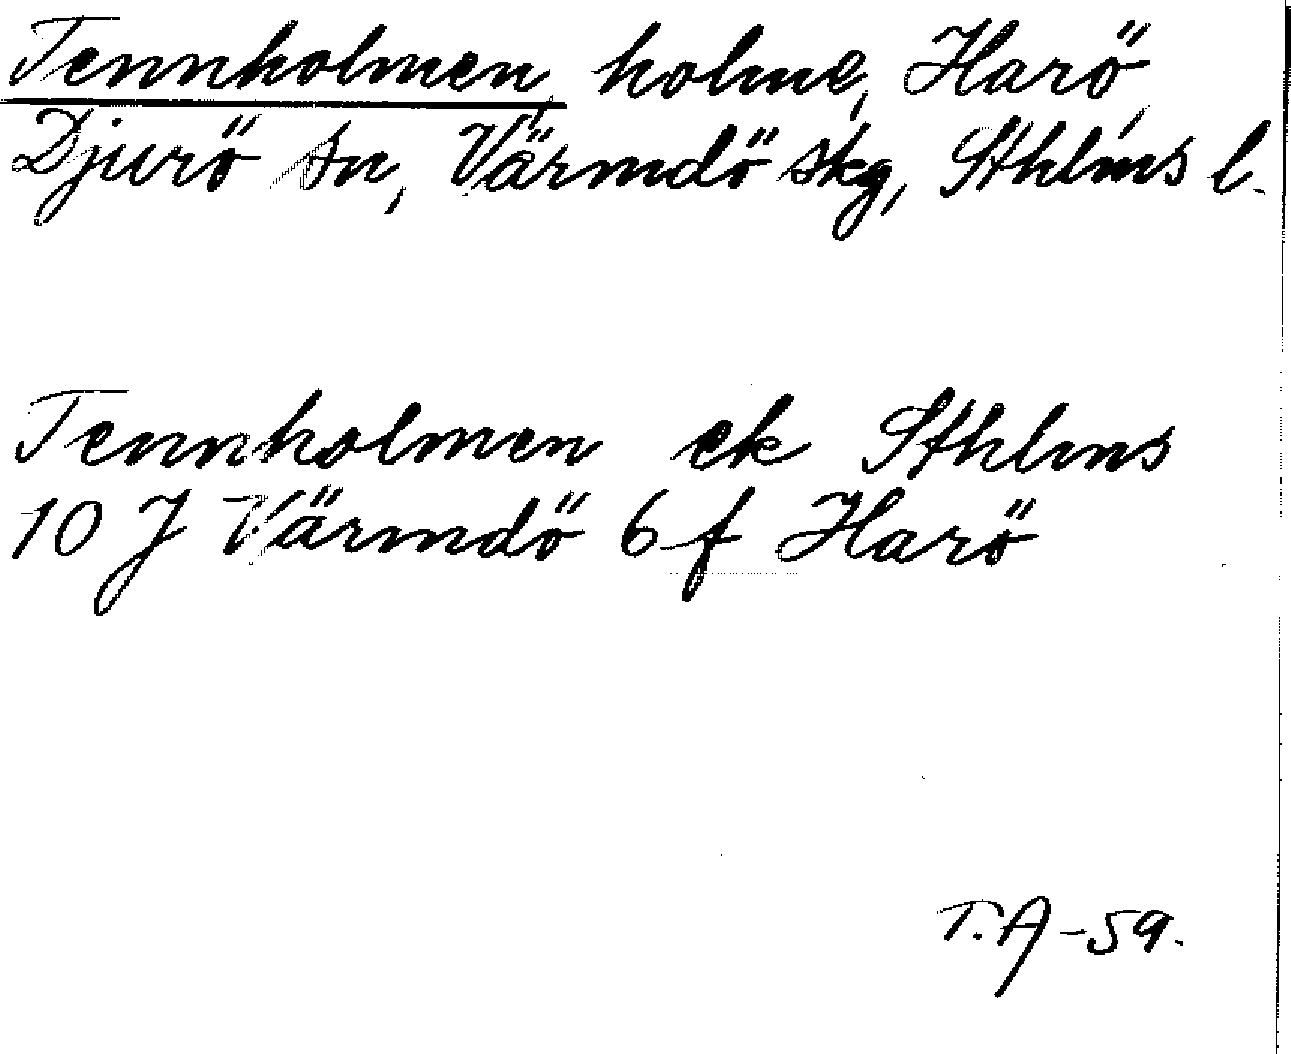 Tennholmen, holme, Harö,
Djurö sn, Värmdö skg, Sthlms l.
Tennholmen ek Sthlms
10 J Värmdö 6 f Harö
T. A -59.